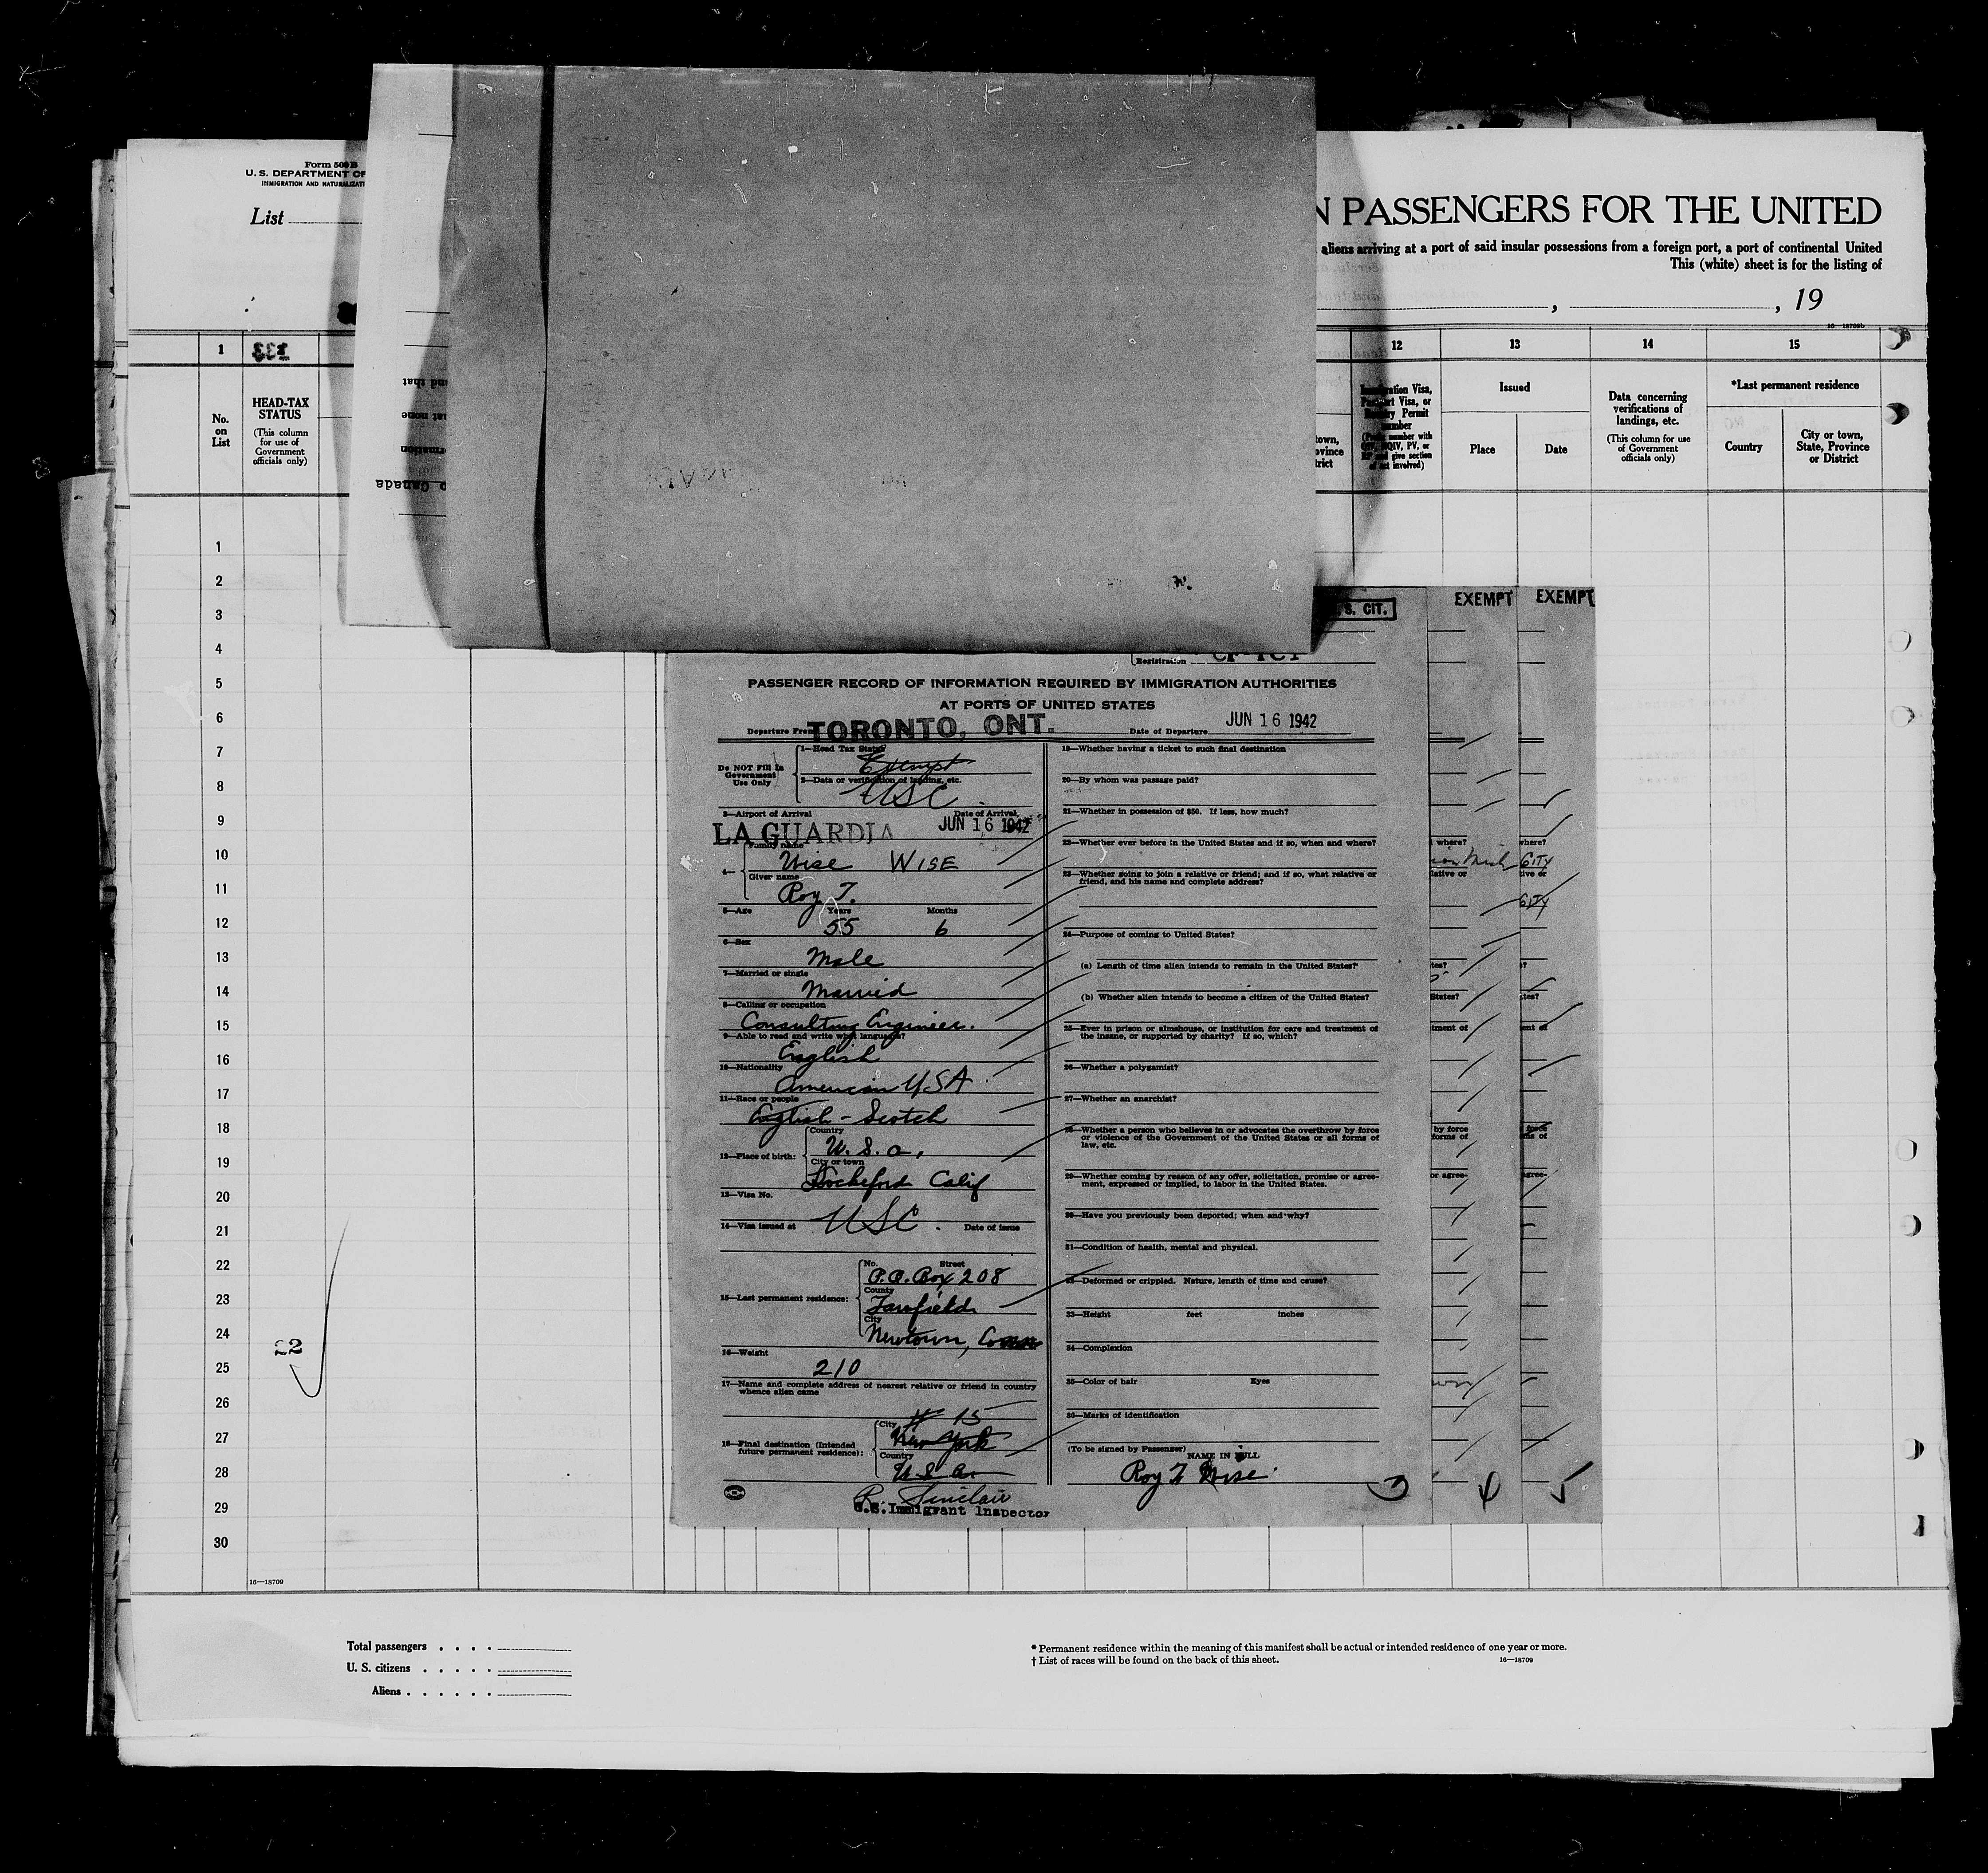 Form 500 B
U. S. DEPARTMENT OF
IMMIGRATION AND NATURALIZATI
List
N PASSENGERS FOR THE UNITED
aliens arriving at a port of said insular possessions from a foreign port, a port of continental United
This (white) sheet is for the listing of
, , 19
16—18709b
1 12 13 14 15
No. on List
HEAD-TAX STATUS
(This column for use of Government officials only)
Immigration Visa, Passport Visa, or Reentry Permit number
(Prefix number with QIV, NQIV, PV, or RP and give section of act involved)
Issued
Place
Date
Data concerning verifications of landings, etc.
(This column for use of Government officials only)
*Last permanent residence
Country
City or town, State, Province or District
1
2
3
4
5
6
7
8
9
10
11
12
13
14
15
16
17
18
19
20
21
22
23
24
25
26
27
28
29
30
22
16—18709
S. CIT.
EXEMPT EXEMPT
Registration
PASSENGER RECORD OF INFORMATION REQUIRED BY IMMIGRATION AUTHORITIES
AT PORTS OF UNITED STATES
Departure From TORONTO, ONT. Date of Departure JUN 16 1942
Do NOT Fill In Government Use Only
1—Head Tax Status
Exempt
2—Data or verification of landing, etc.
USC
3—Airport of Arrival Date of Arrival
LA GUARDIA JUN 16 1942
4— Family name
Wise WISE
Given name
Roy T.
5—Age Years Months
55 6
6—Sex
Male
7—Married or single
Married
8—Calling or occupation
Consulting Engineer.
9—Able to read and write what language?
English
10—Nationality
American USA
11—Race or people
English - Scotch
12—Place of birth: Country
U. S. a.
City or town
Lockeford Calif
13—Visa No.
USC.
14—Visa issued at Date of issue
15—Last permanent residence: No. Street
P.O. Box 208
County
Fairfield
City
Newtown, Conn
16—Weight
210
17—Name and complete address of nearest relative or friend in country
whence alien came
# 15
18—Final destination (Intended future permanent residence): City
New York
Country
U.S.A.
R. Sinclair
U.S. Immigrant Inspector
19—Whether having a ticket to such final destination
20—By whom was passage paid?
21—Whether in possession of $50. If less, how much?
22—Whether ever before in the United States and if so, when and where?
23—Whether going to join a relative or friend; and if so, what relative or
friend, and his name and complete address?
24—Purpose of coming to United States?
(a) Length of time alien intends to remain in the United States?
(b) Whether alien intends to become a citizen of the United States?
25—Ever in prison or almshouse, or institution for care and treatment of
the insane, or supported by charity? If so, which?
26—Whether a polygamist?
27—Whether an anarchist?
28—Whether a person who believes in or advocates the overthrow by force
or violence of the Government of the United States or all forms of
law, etc.
29—Whether coming by reason of any offer, solicitation, promise or agree-
ment, expressed or implied, to labor in the United States.
30—Have you previously been deported; when and why?
31—Condition of health, mental and physical.
32—Deformed or crippled. Nature, length of time and cause?
33—Height feet inches
34—Complexion
35—Color of hair Eyes
36—Marks of identification
(To be signed by Passenger)
NAME IN FULL
Roy T Wise
3 4 5
where? where?
CITY
CITY
Total passengers
U. S. citizens
Aliens
* Permanent residence within the meaning of this manifest shall be actual or intended residence of one year or more.
† List of races will be found on the back of this sheet. 16—18709